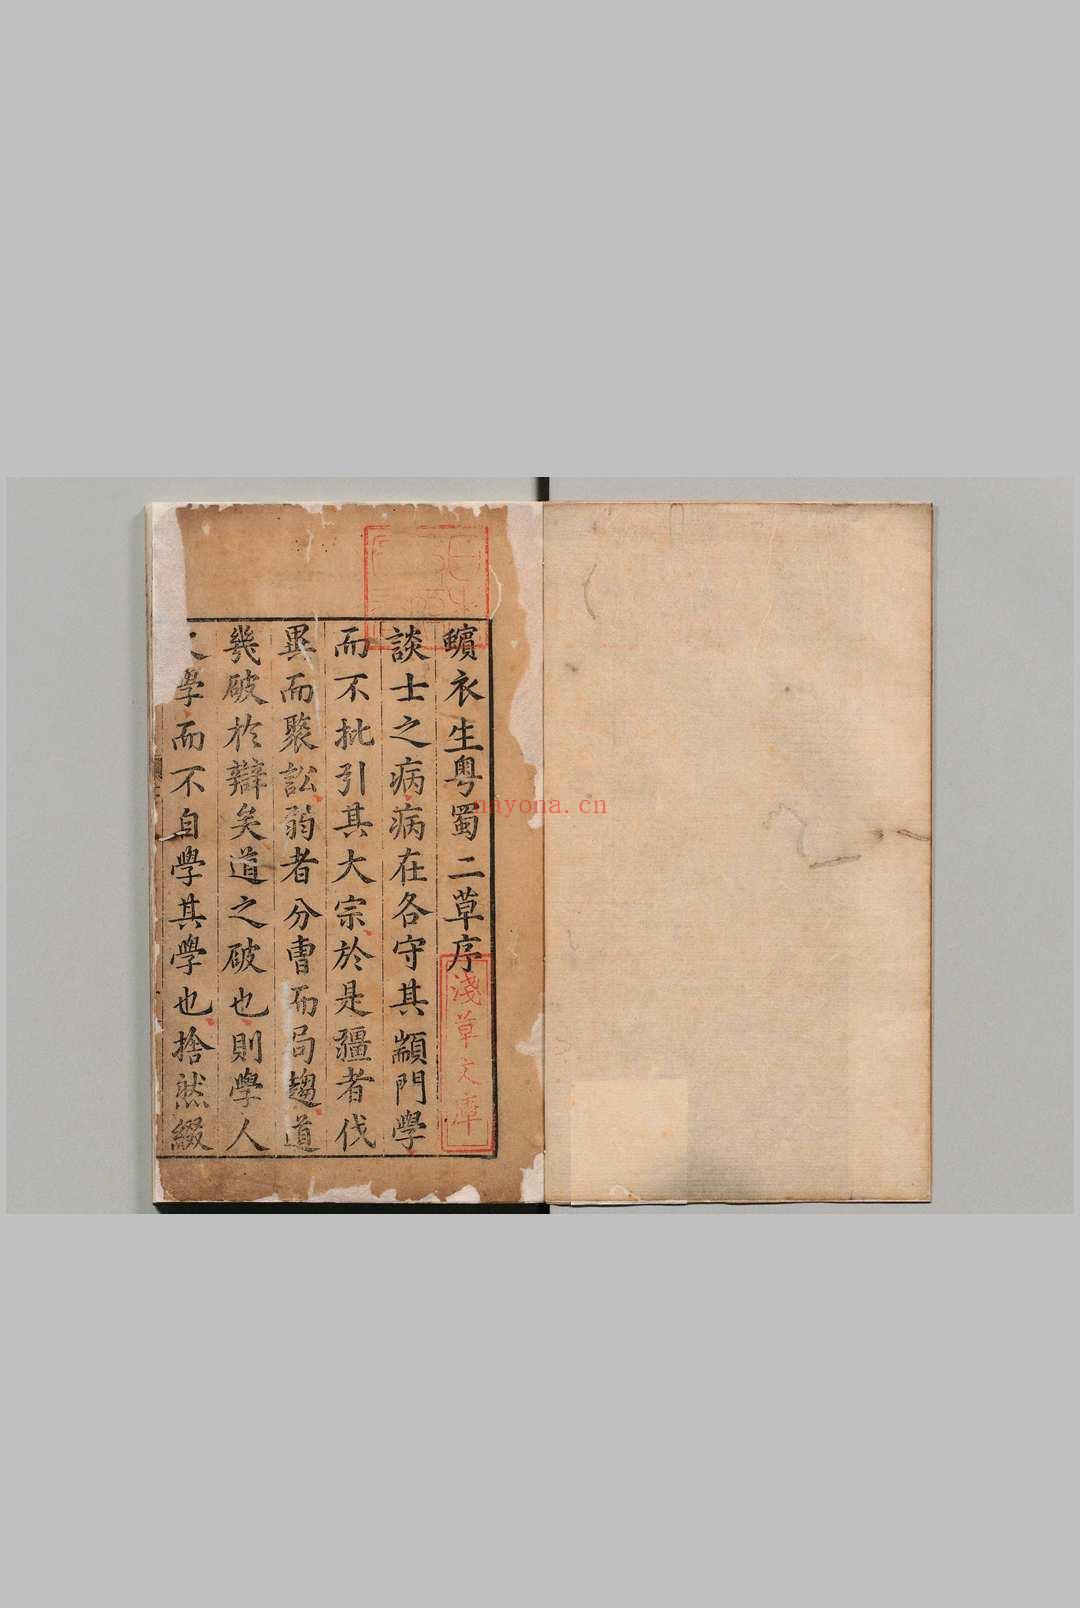 蠙衣生粤蜀二草序
談士之病病在各守其顓門學
而不批引其大宗於是疆者伐
異而聚訟弱者分曹而局趨道
幾破於辯矣道之破也則學人
學而不自學其學也捨然綴
淺草文庫
nayona.cn